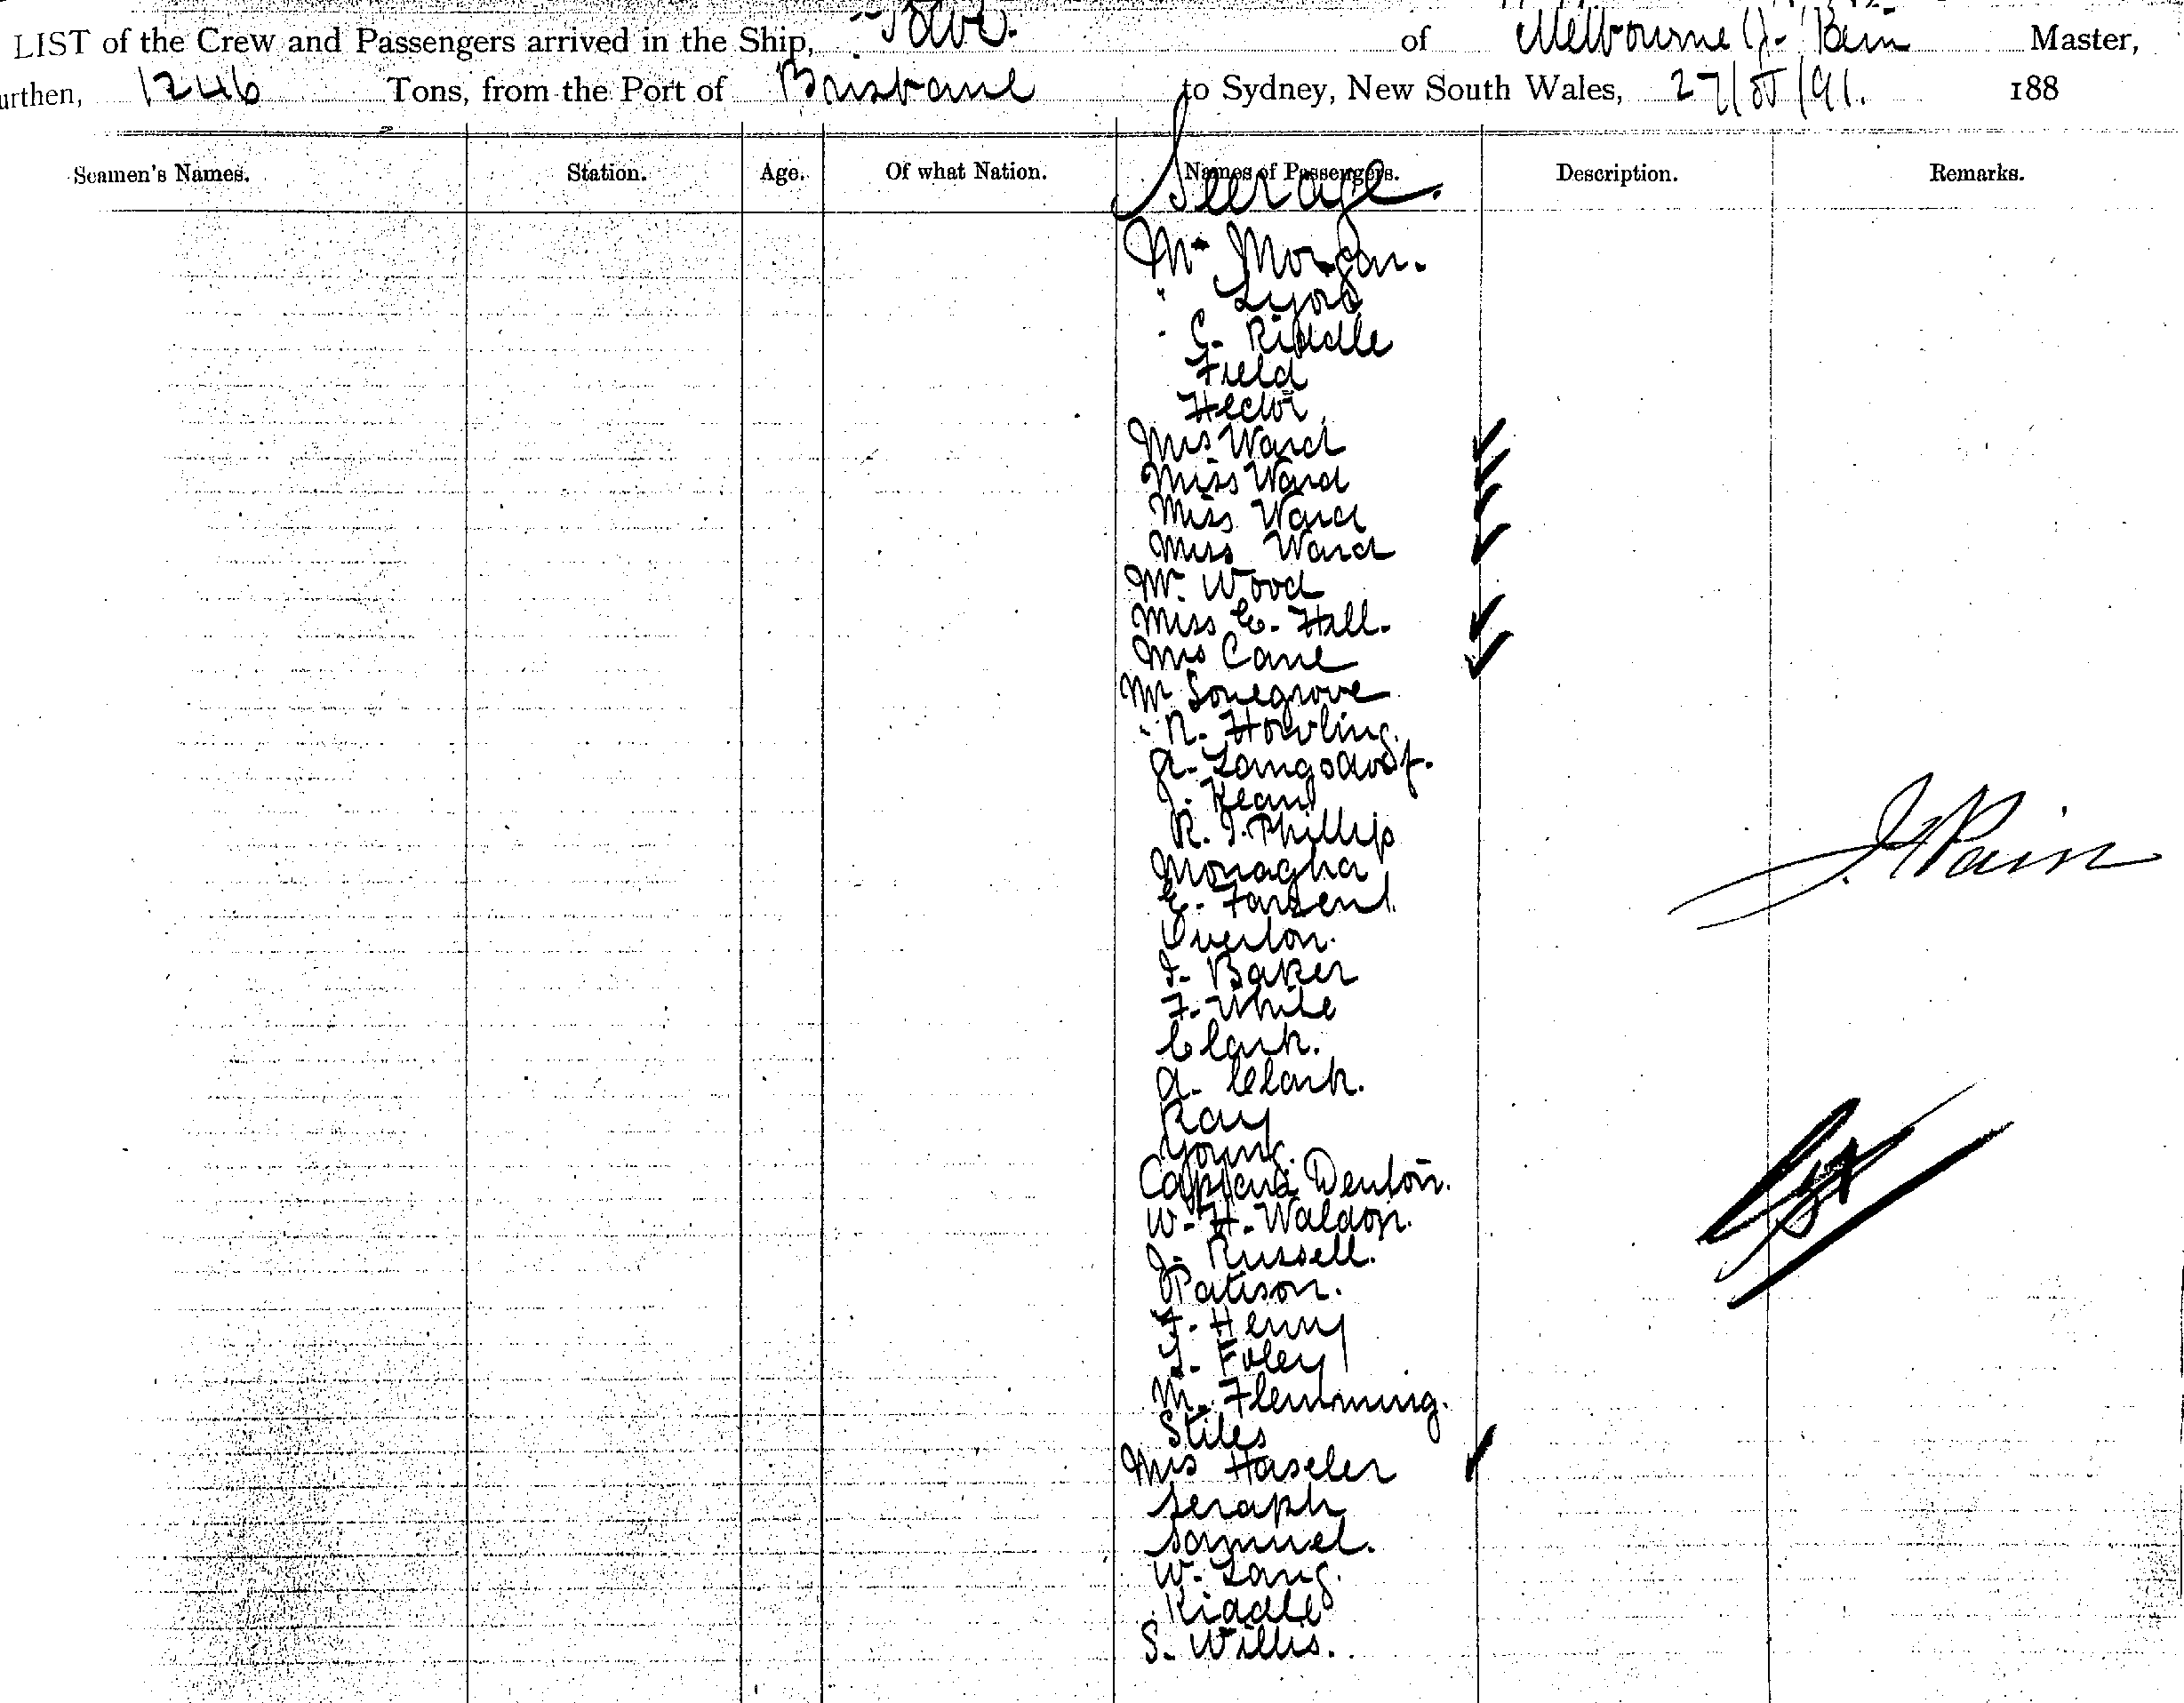 LIST of the Crew and Passengers arrived in the Ship, of Melbourne J. Master,
urthen, 1246 Tons, from the Port of Brisbane to Sydney, New South Wales, 27/ /91. 188
Seamen's Names. Station. Age. Of what Nation. Names of Passengers. Description. Remarks.
Steerage.
Mr Morgan.
"
" C. Riddle
Field
Hector
Mrs Ward
Miss Ward
Miss Ward
Miss Ward
Mr. Wood
Miss E. Hall.
Mrs Cane
Mr Sonegrove
" R. Howling.
A. Langsdorf.
J. Kean
R. J. Phillip
Monagha
E.
Overton.
J. Baker
F. White
Clark.
A. Clark.
Ray
Young.
Captain Denton.
W. H. Waldon.
J. Russell.
Patison.
F. Henny
J. Foley
M. Flemming.
Stiles
Mrs Haseler
Seraph
Samuel.
W. Lang.
Riddle
S. Willis.
J Pain